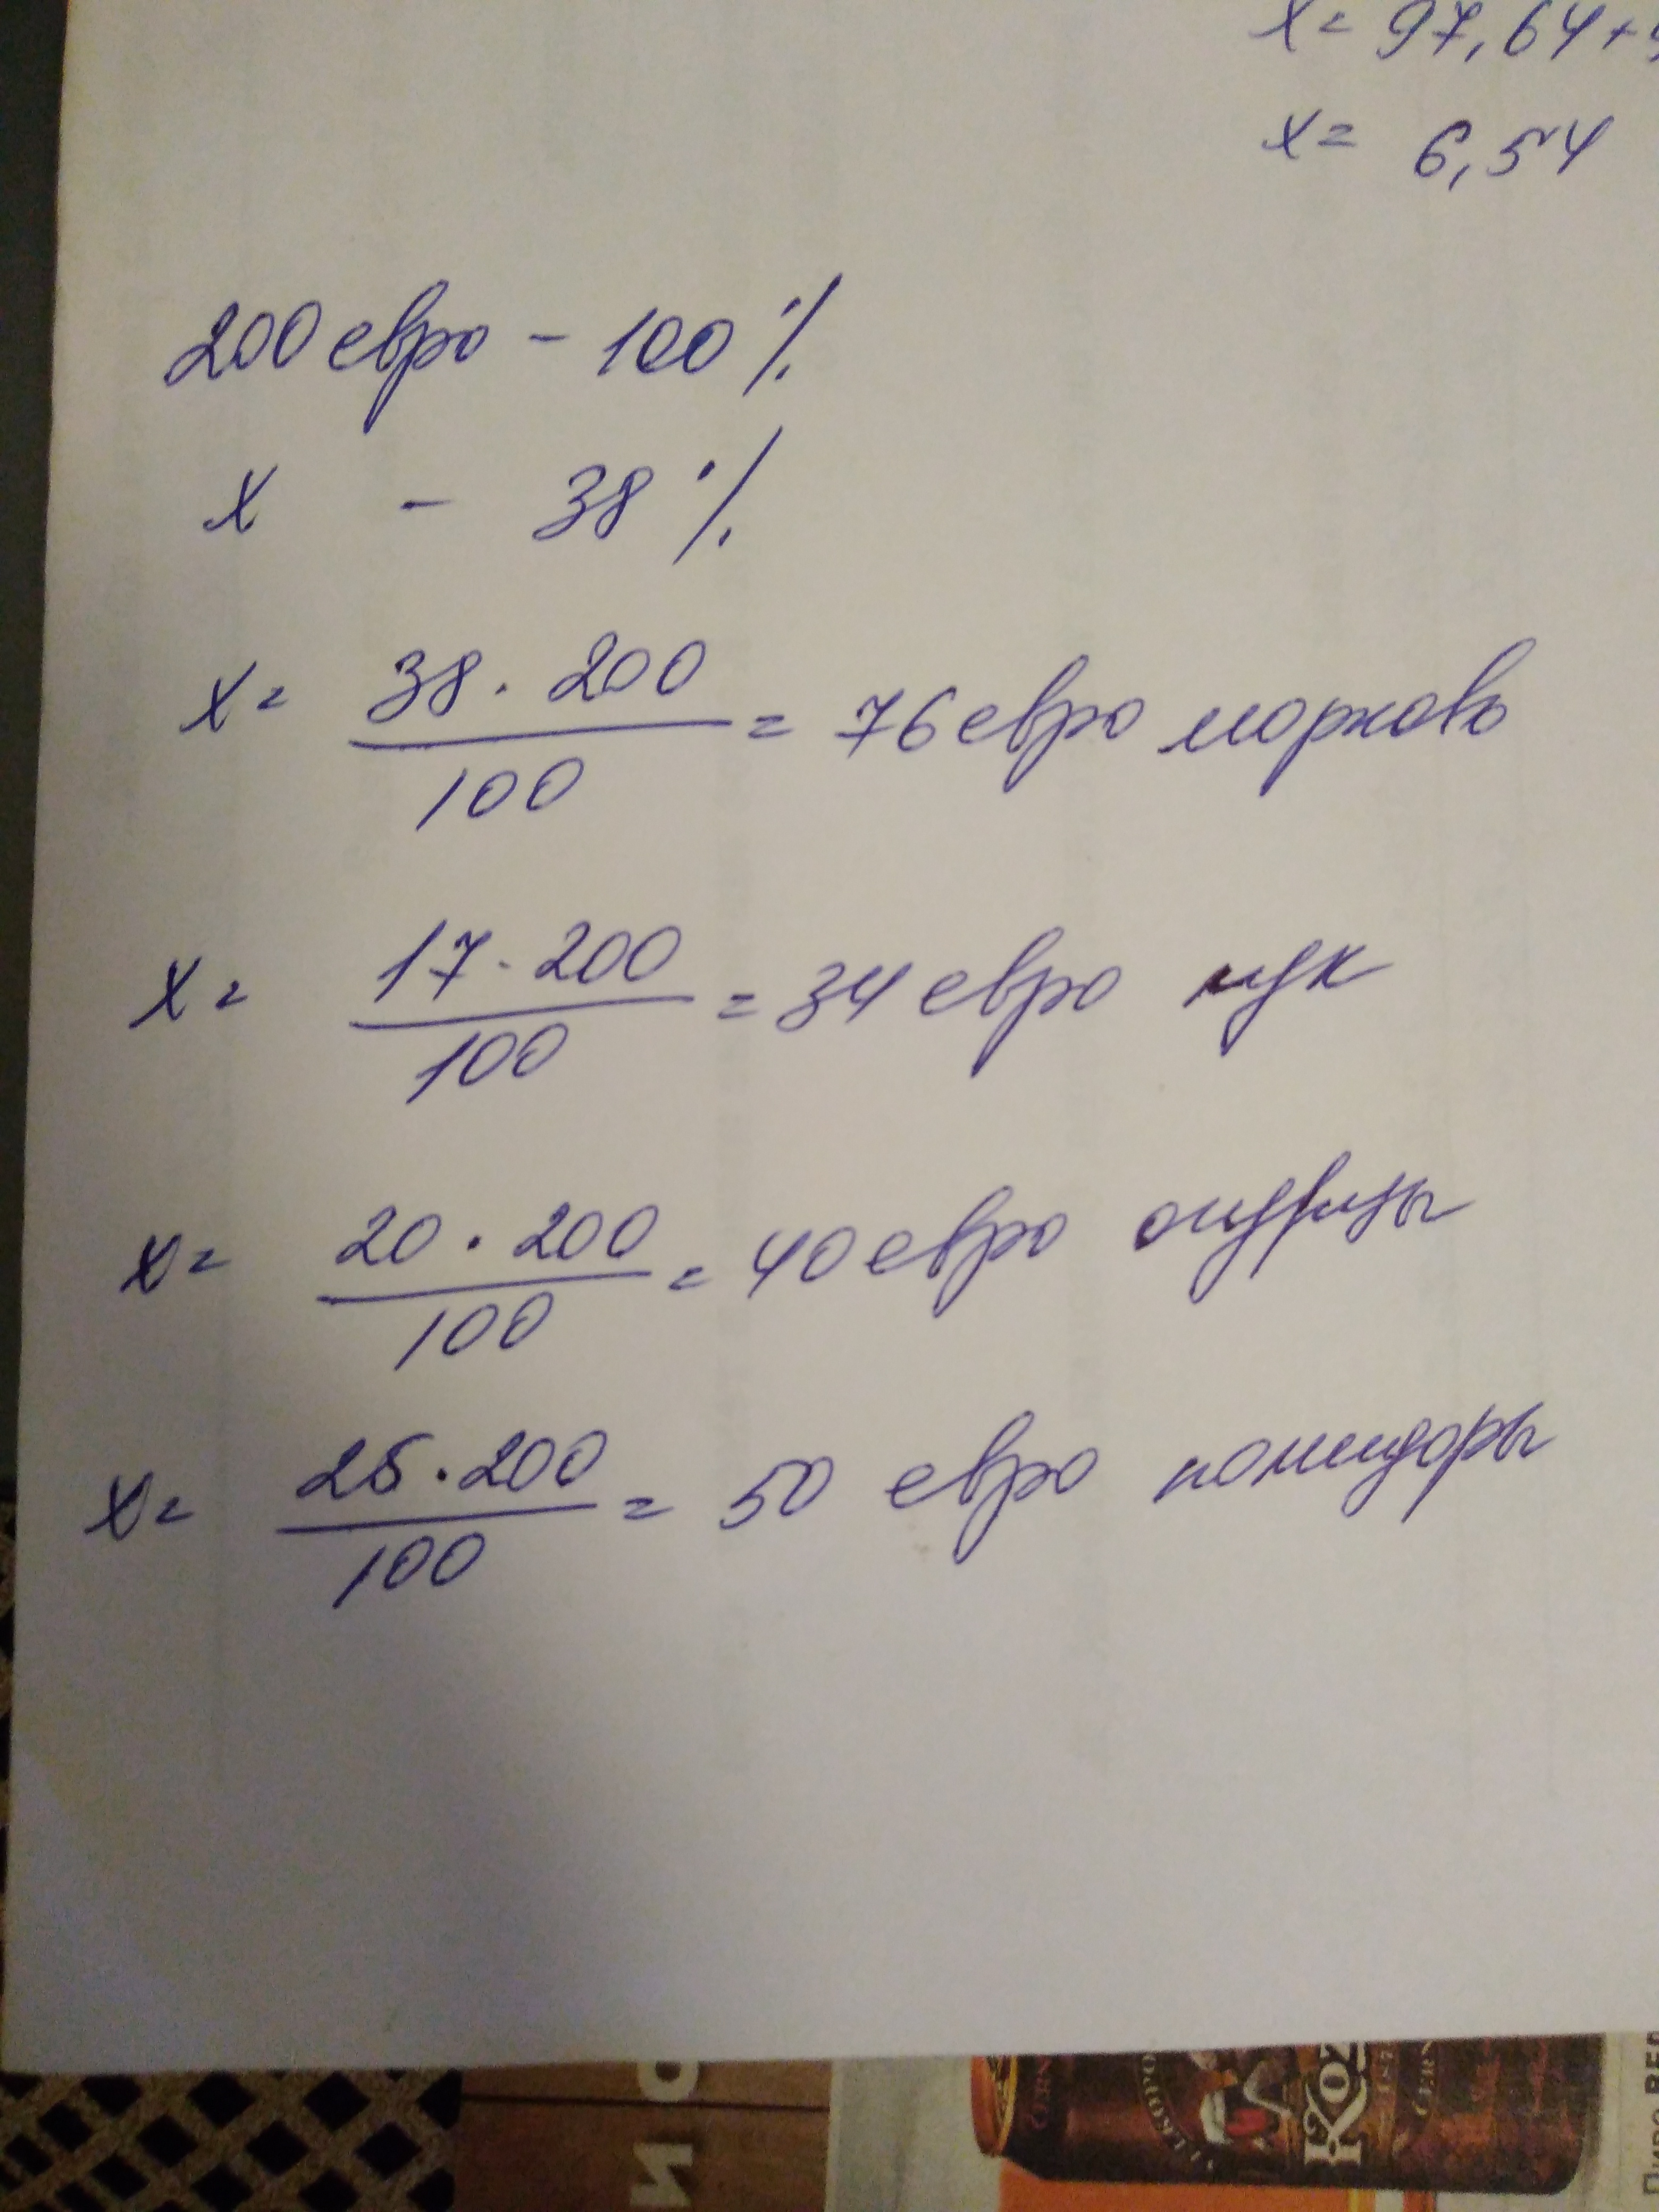 x = 97,64+
x = 6,54
200 евро - 100 %
x - 38 %
x = 38 · 200 / 100 = 76 евро морковь
x = 17 · 200 / 100 = 34 евро лук
x = 20 · 200 / 100 = 40 евро огурцы
x = 25 · 200 / 100 = 50 евро помидоры
KOZ
CERN